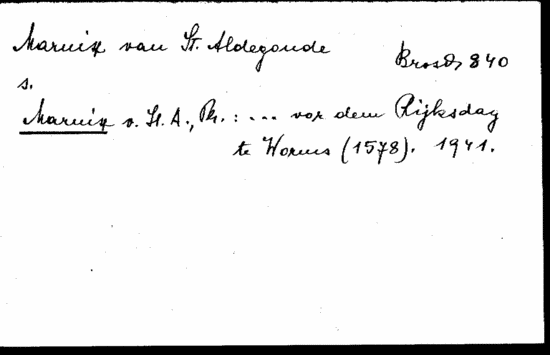 Marnix van St. Aldegonde
Brosch 840
s.
Marnix v. St. A., Ph. : ... vor dem Rijksdag
te Worms (1578). 1941.